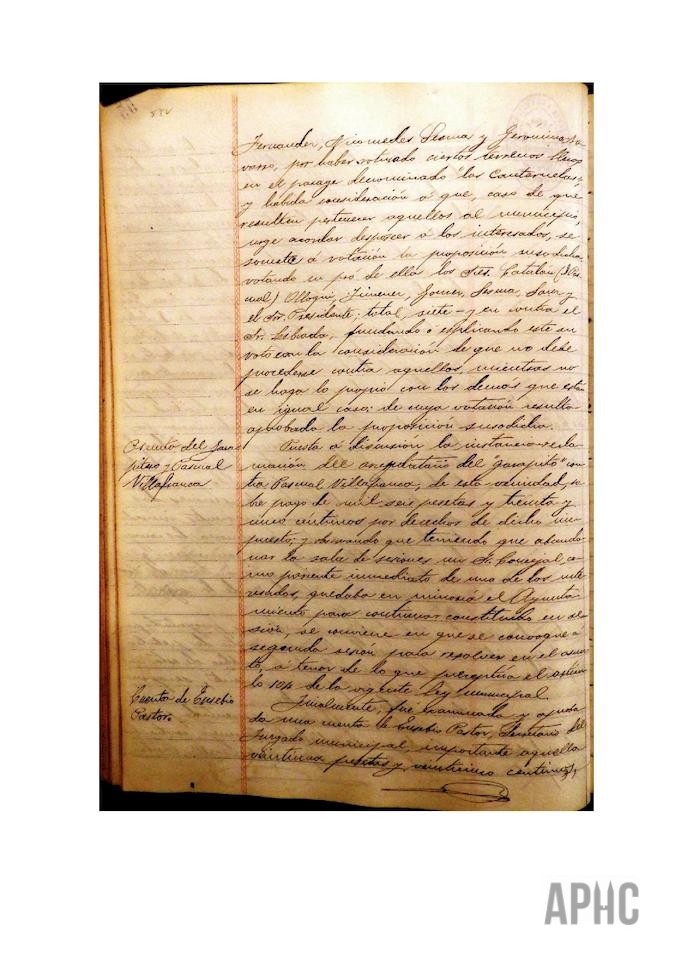 Fernandez, Nicomedes Sesma y Gerónimo Na-
varro, por haber roturado ciertos terrenos
en el parage denominado "las Cantaruelas,
y habida consideración á que, caso de que
resulten pertenecer aquellos al municipio,
urge acordar desposeer á los interesados, se
somete á votación la proposición susodicha
votando en pró de ella los Sres. Catalan (D. Pas-
cual) Olloqui, Jimenez, Gomez, Sesma, Sanz y
el Sr. Presidente; total, siete - y en contra el
Sr. fundando ó esplicando este su
voto con la consideración de que no debe
procederse contra aquellos, mientras no
se haga lo propio con los demás que están
en igual caso; de cuya votación resulta
aprobada la proposición susodicha.
Asunto del Gara-
pito y Pascual
Villafranca
Puesta á discusión la instancia-recla-
mación del arrendatario del "garapito" con-
tra Pascual Villafranca, de esta vecindad, so-
bre pago de mil seis pesetas y treinta y
cinco céntimos por derechos de dicho im-
puesto; y observando que teniendo que abando-
nar la sala de sesiones un Sr. Concejal, co-
mo pariente inmediato de uno de los inte-
resados, quedaba en minoría el Ayunta-
miento para continuar constituido en se-
sión, se conviene en que se convoque á
segunda sesión para resolver en el asun-
to, á tenor de lo que preceptúa el artícu-
lo 104 de la vigente ley municipal.
Cuenta de Eusebio
Pastor
Finalmente, fue examinada y aproba-
da una cuenta de Eusebio Pastor, Secretario del
Juzgado municipal, importante aquella
pesetas y veinticinco céntimos,
APHC